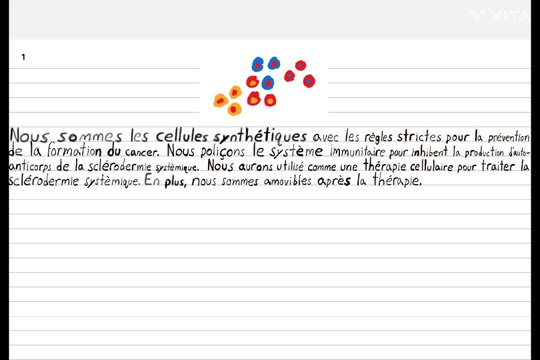 VITA
1
Nous sommes les cellules synthétiques avec les règles strictes pour la prévention
de la formation du cancer. Nous poliçons le système immunitaire pour inhibent la production d'auto-
anticorps de la sclérodermie systèmique. Nous aurons utilisé comme une thérapie cellulaire pour traiter la
sclérodermie systèmique. En plus, nous sommes amovibles après la thérapie.